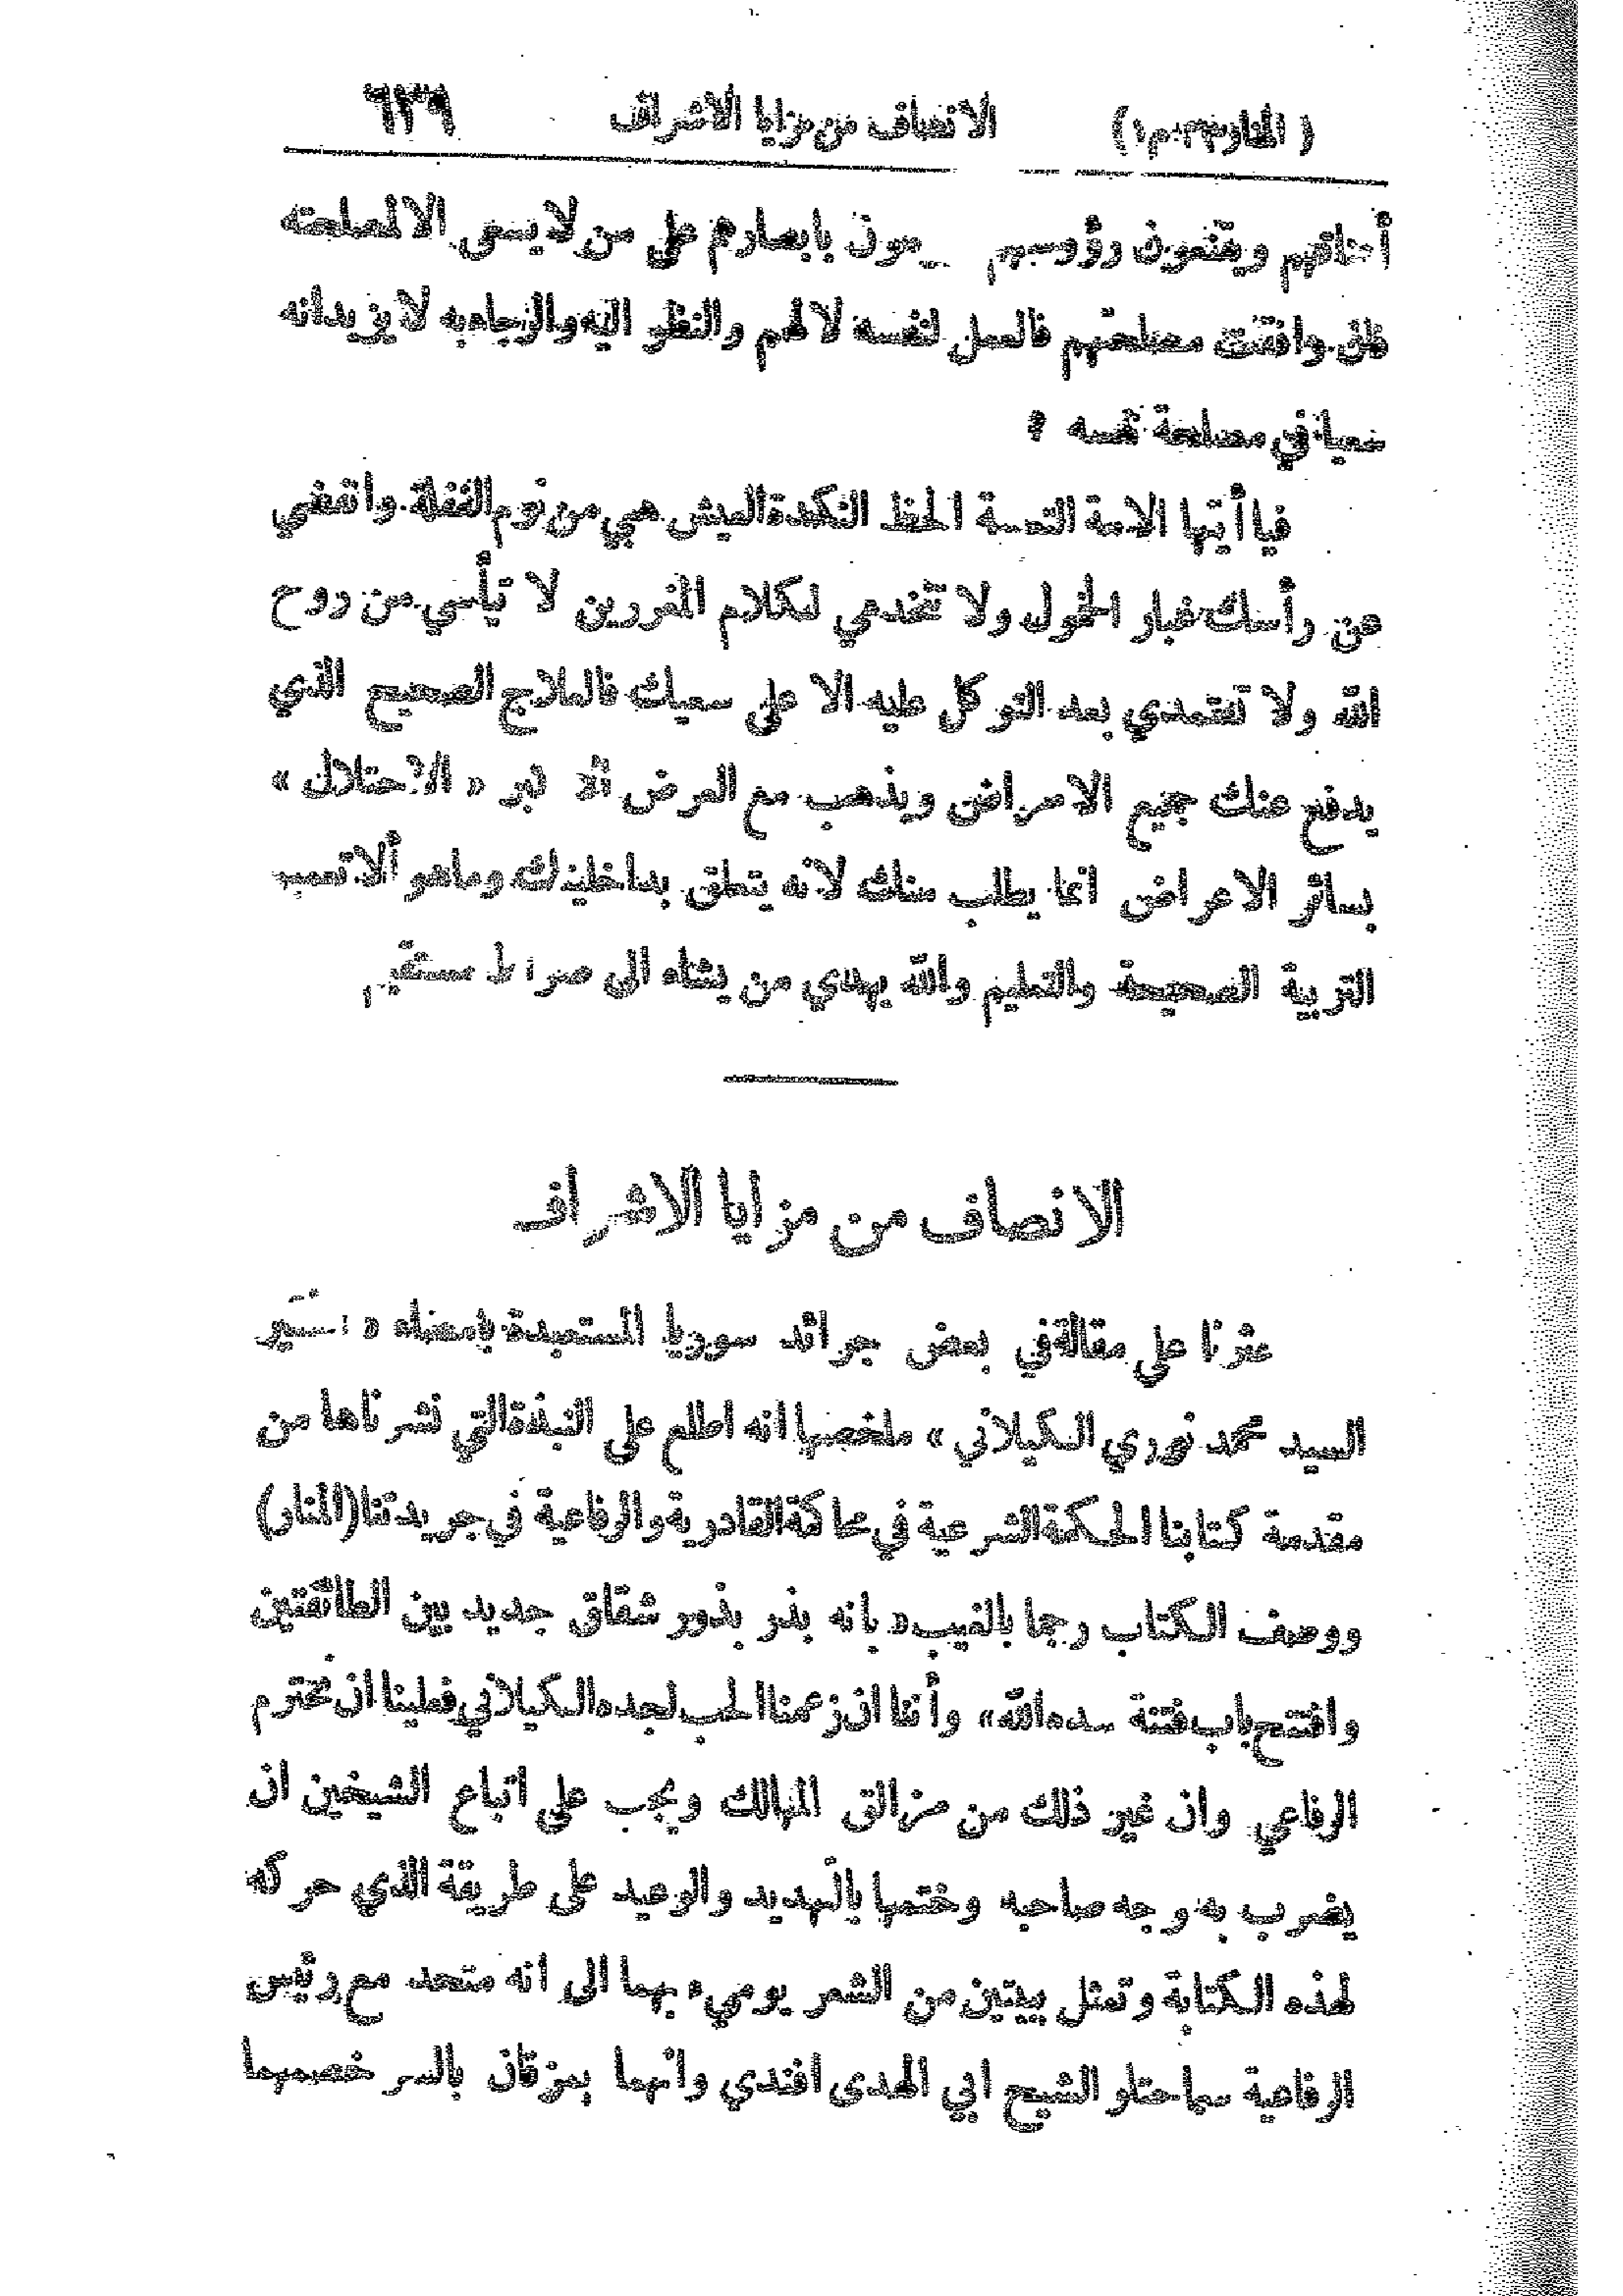 (المنار٣٣ م١) الانصاف من مزايا الاشراف ٦٣٩
أعناقهم ويقنعون رؤوسهم بابصارهم على من لا يسعى الا لمصلحته
فان وافقت مصلحتهم فالعمل لنفسه لا لهم والنظر اليه والرجاء به لا يزيدانه
سعيا في مصلحة نفسه ؟
فيا أيتها الامة التعسة الحظ النكدة العيش هبي من نوم الغفلة وانفضي
عن رأسك غبار الخمول ولا تخدعي لكلام المغررين لا تيأسي من روح
الله ولا تعتمدي بعد التوكل عليه الا على سعيك فالعلاج الصحيح الذي
يدفع عنك جميع الامراض ويذهب مع العرض « الاحتلال »
بسائر الاعراض انما يطلب منك لانه يتعلق بداخليتك وما هو ألا تعميم
التربية الصحيحة والتعليم والله يهدي من يشاء الى صراط مستقيم
الانصاف من مزايا الاشراف
عثرنا على مقالة في بعض جرائد سوريا المستعبدة بامضاء «
السيد محمد نوري الكيلاني » ملخصها انه اطلع على النبذة التي نشرناها من
مقدمة كتابنا الحكمة الشرعية في محاكمة القادرية والرفاعية في جريدتنا (المنار)
ووصف الكتاب رجما بالغيب « بانه بذر بذور شقاق جديد بين الطائفتين
وافتتح باب فتنة سده الله » وأننا ان زعمنا الحب لجده الكيلاني فعلينا ان نحترم
الرفاعي وان غير ذلك من مزالق المهالك ويجب على اتباع الشيخين ان
يضرب به وجه صاحبه وختمها بالتهديد والوعيد على طريقة الذي حركه
لهذه الكتابة وتمثل ببيتين من الشعر يوميء بهما الى انه متحد مع رئيس
الرفاعية سماحتلو الشيخ ابي الهدى افندي وانهما يمزقان بالسر خصمهما